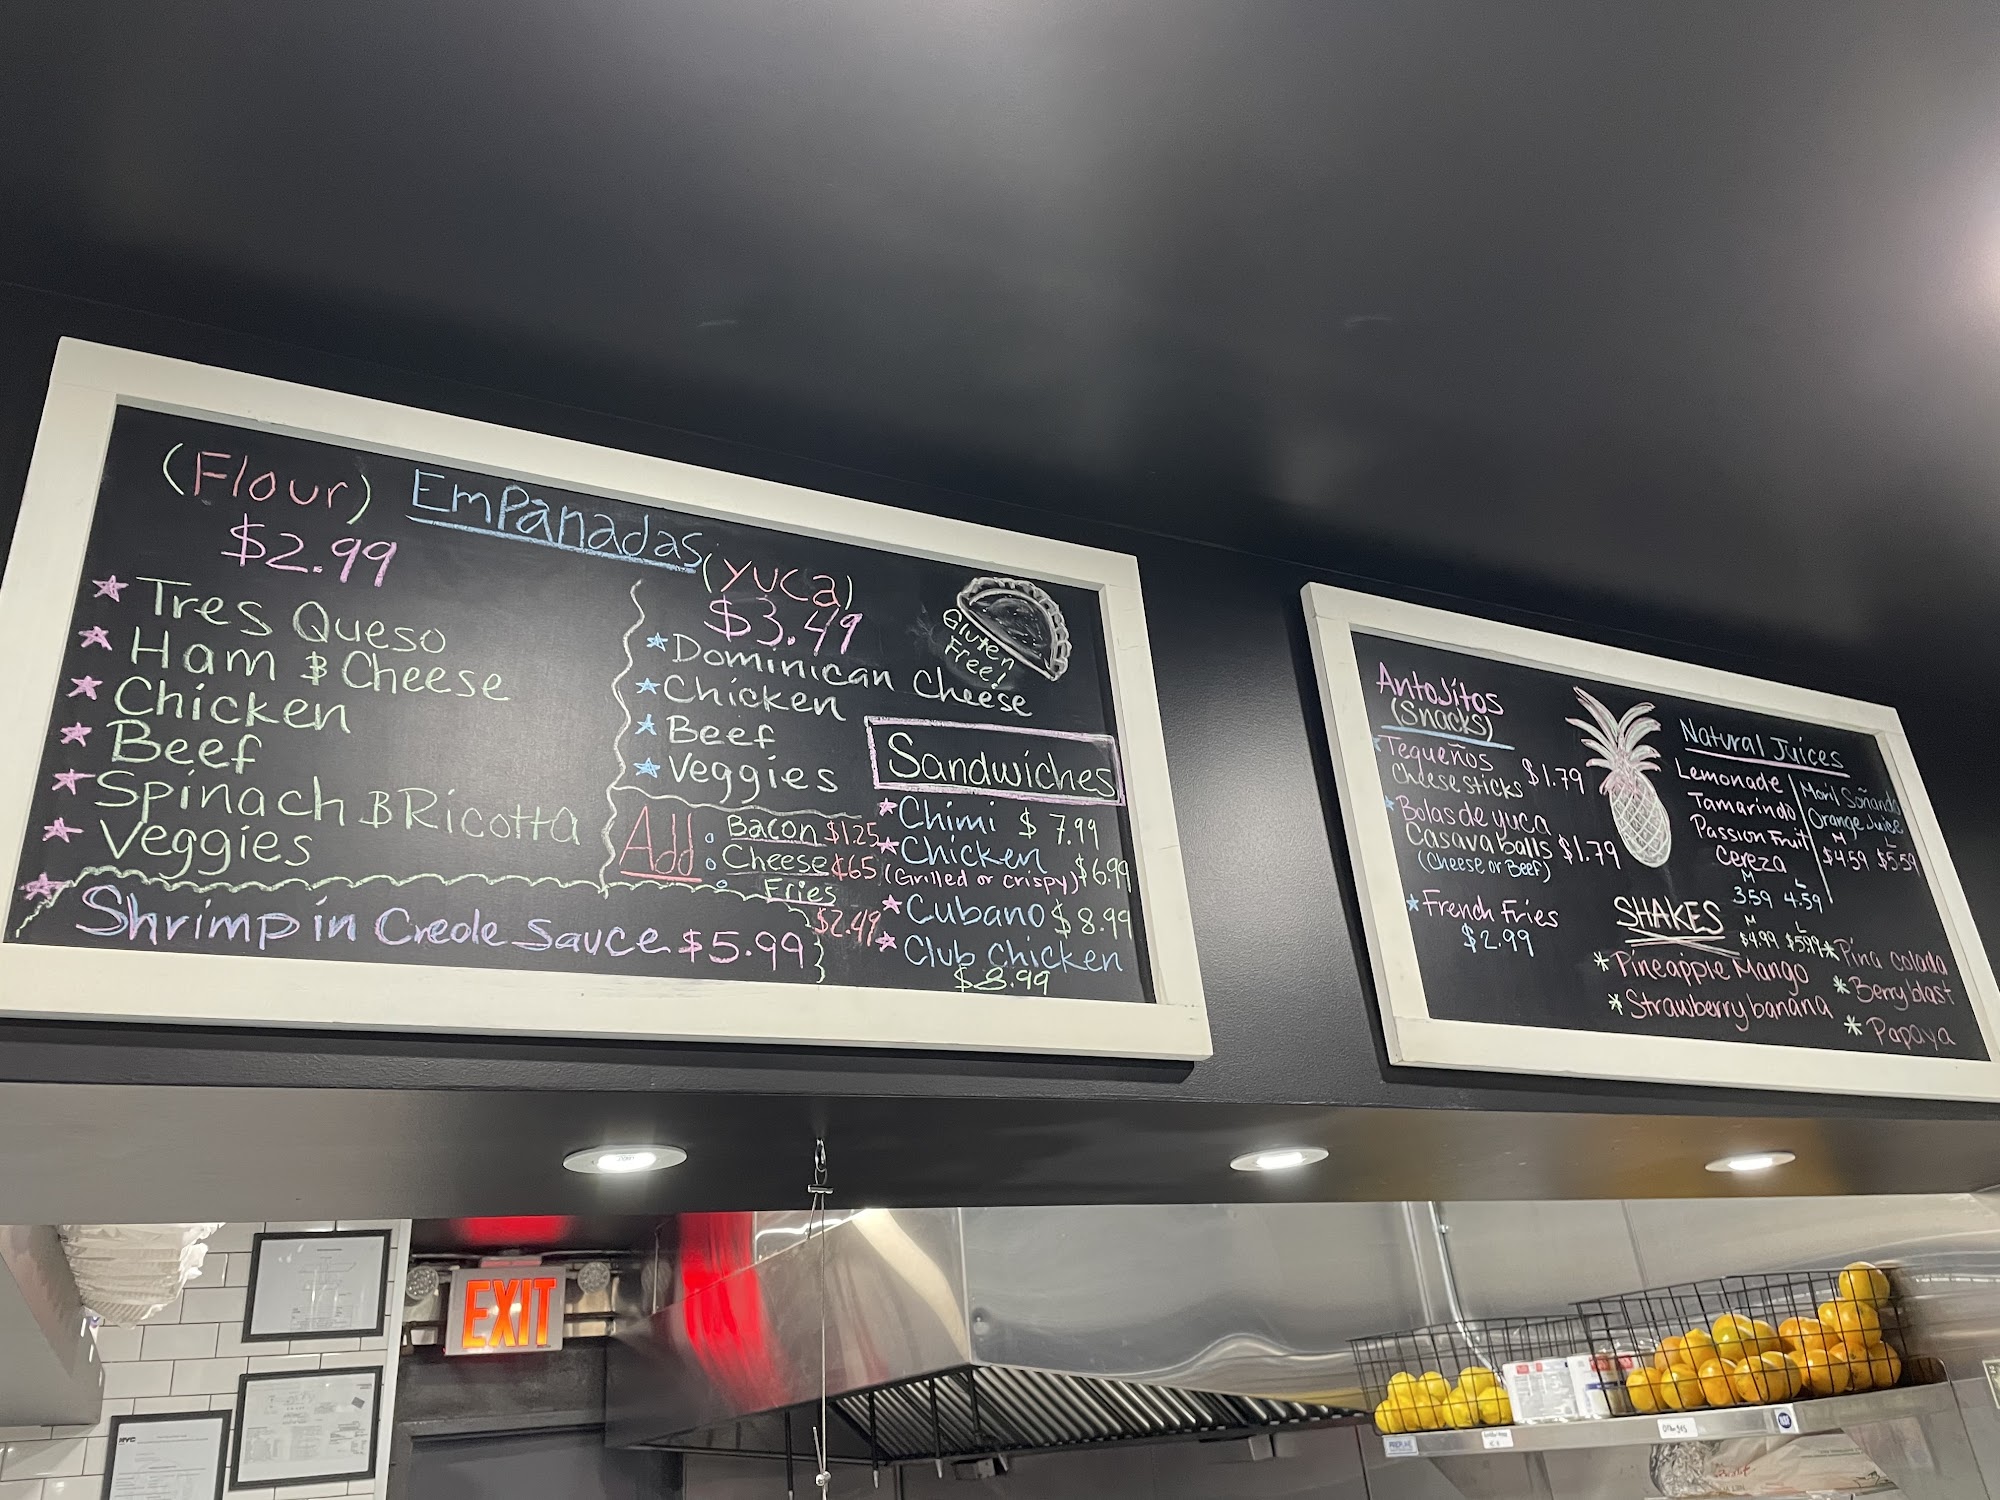 (Flour)
Empanadas
$2.99
Tres Queso
Ham & Cheese
Chicken
Beef
Spinach & Ricotta
Veggies
Shrimp in Creole Sauce $5.99
(yuca)
$3.49
Dominican Cheese
Chicken
Beef
Veggies
Gluten
Free!
Add
Bacon $1.25
Cheese ¢65
Fries
$2.49
Sandwiches
Chimi $7.99
Chicken $6.99
(Grilled or crispy)
Cubano $8.99
Club Chicken
$8.99
Antojitos
(Snacks)
Tequeños
Cheese sticks $1.79
Bolas de yuca
Casava balls $1.79
(Cheese or Beef)
French Fries
$2.99
Natural Juices
Lemonade
Tamarindo
Passion Fruit
Cereza
M L
3.59 4.59
Moril Soñando
Orange Juice
M L
$4.59 $5.59
SHAKES
M L
$4.99 $5.99
Pineapple Mango
Strawberry banana
Pina colada
Berry blast
Papaya
EXIT
NYC